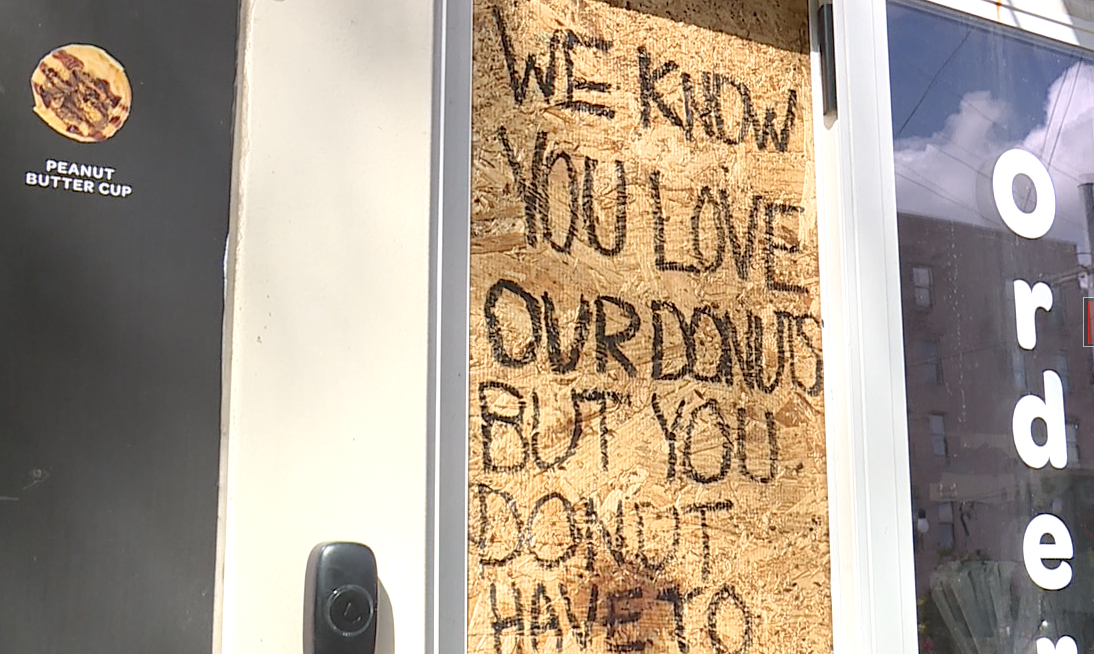 PEANUT
BUTTER CUP
WE KNOW
YOU LOVE
OUR DONUTS
BUT YOU
DONUT
HAVE TO
order